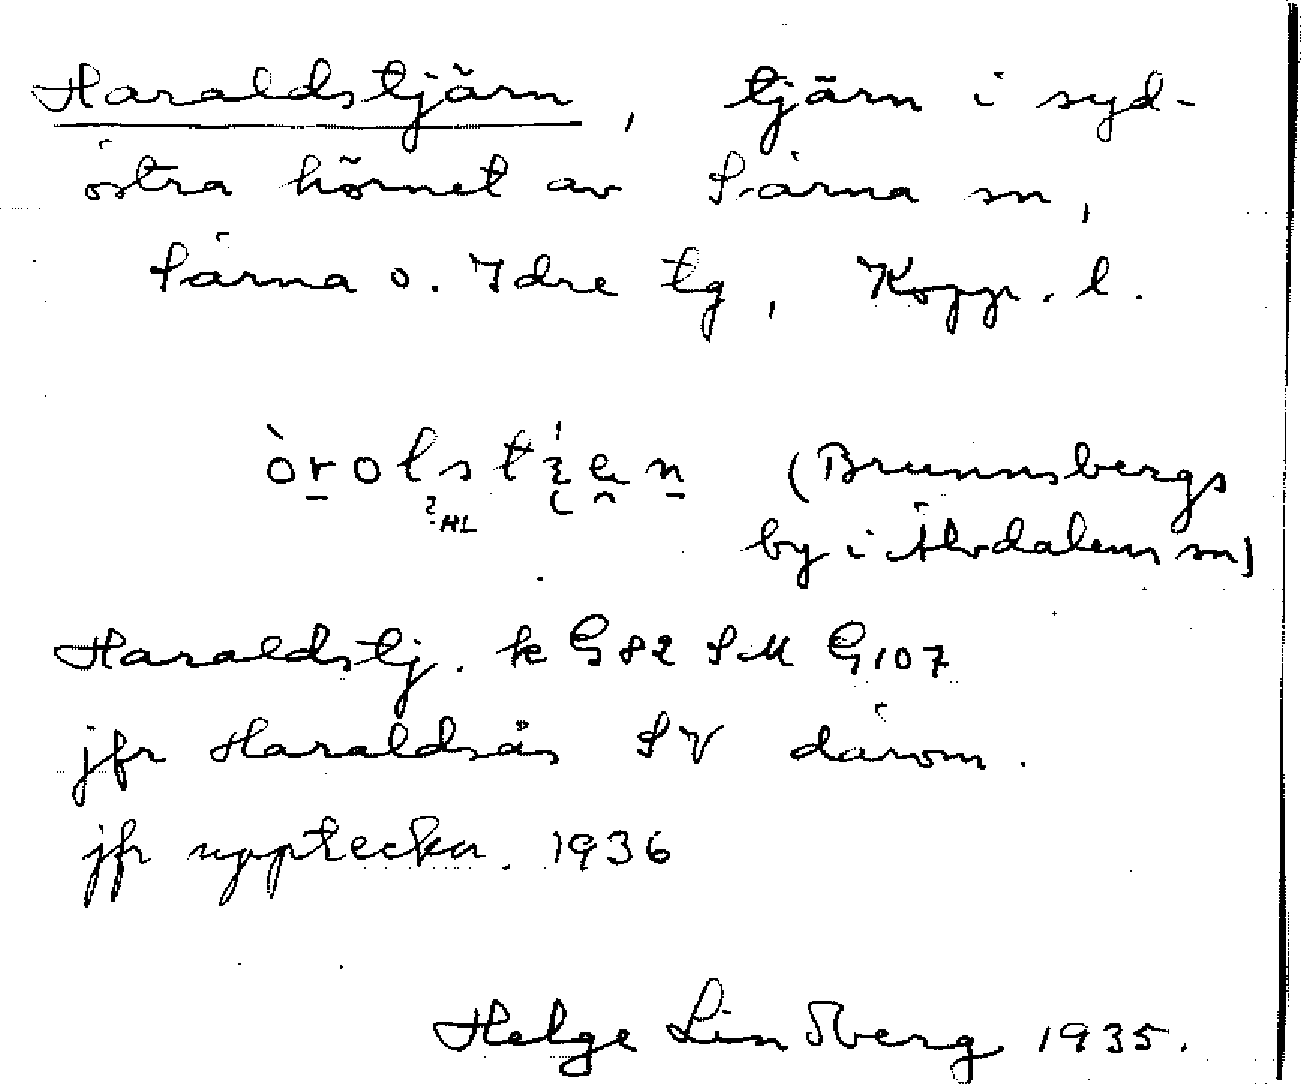 Haraldstjärn, tjärn i syd-
östra hörnet av Särna sn,
Särna o. Idre tg, Kopp. l.
(Brunnsbergs
HL
by i Älvdalens sn)
Haraldstj. k G82 SM G107
jfr Haraldsås SV därom.
jfr uppteckn. 1936
Helge Lindberg 1935.